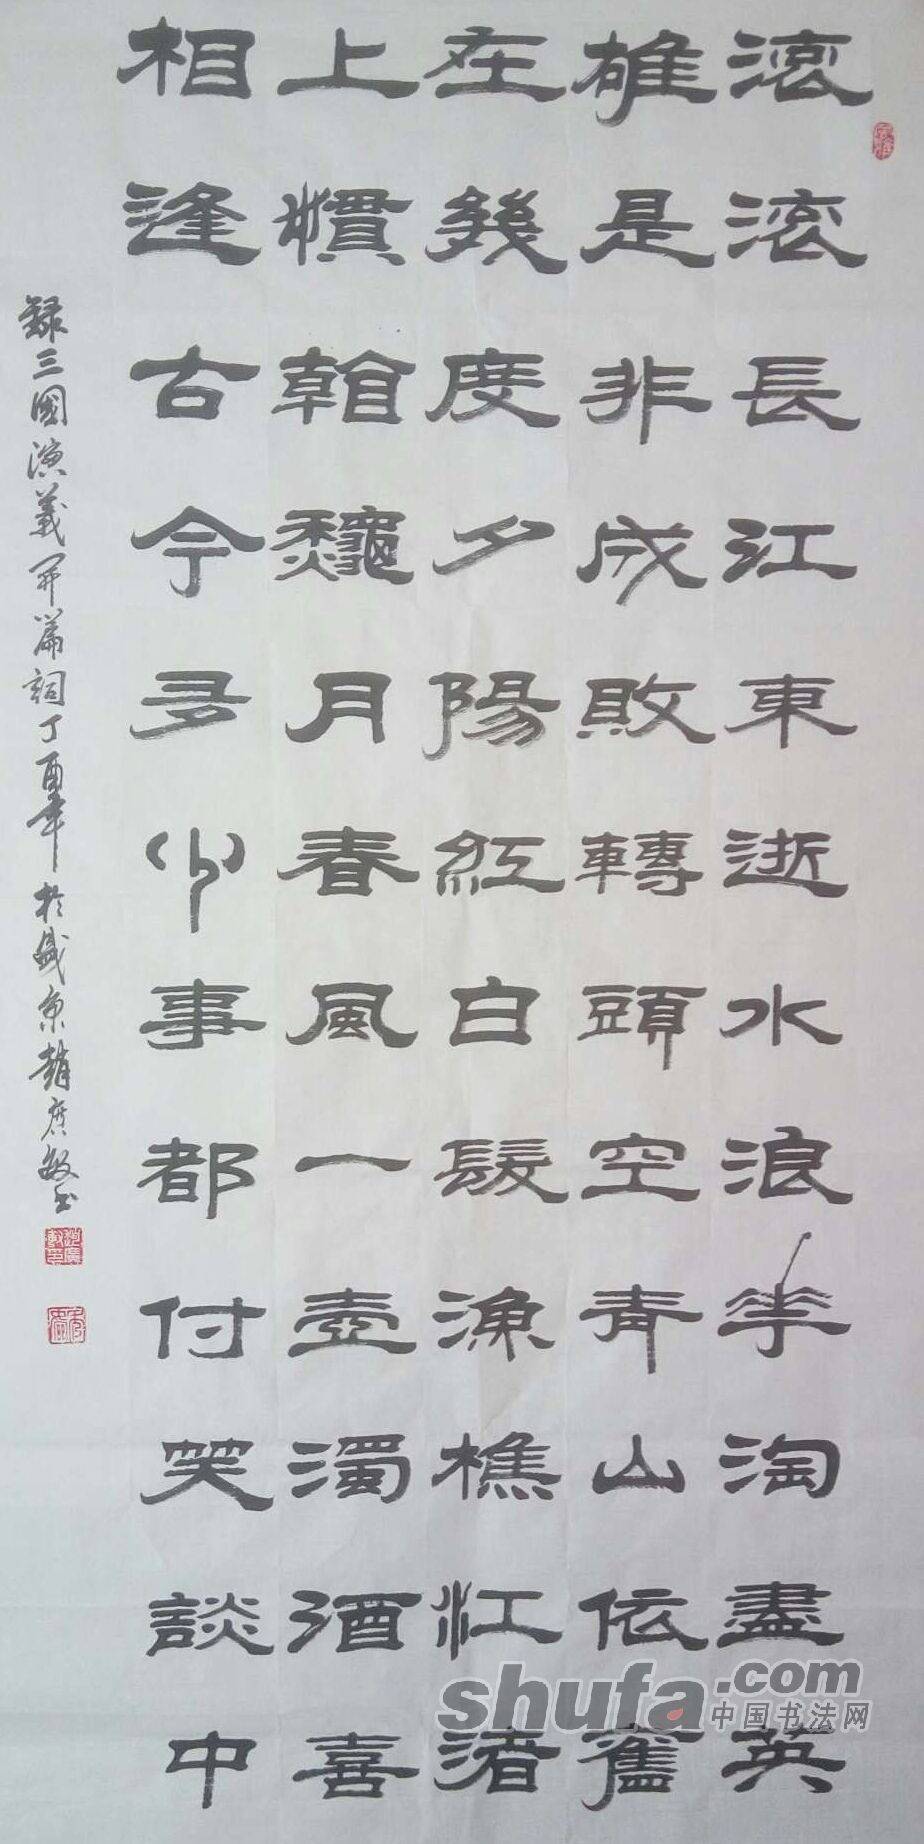 滚滚長江東逝水浪花淘盡英
雄是非成敗轉頭空青山依舊
在幾度夕陽紅白髮漁樵江渚
上慣看秋月春風一壺濁酒喜
相逢古今多少事都付笑談中
録三國演義开篇詞丁酉年於盛京趙廣敏书
shufa.com
中国书法网